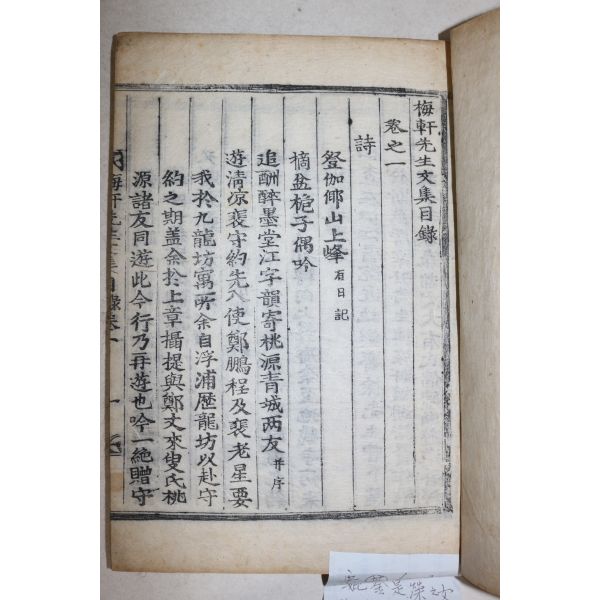 梅軒先生文集目錄
卷之一
詩
登伽倻山上峰 有日記
摘盆梔子偶吟
追酬醉墨堂江字韻寄桃源青城两友 并序
遊清凉裴守約先入使鄭鵬程及裴老星要
我於九龍坊寓所余自浮浦歷龍坊以赴守
約之期盖余於上章攝提與鄭文來叟氏桃
源諸友同遊此今行乃再遊也吟一絶贈守
梅軒先生文集目錄卷一
一